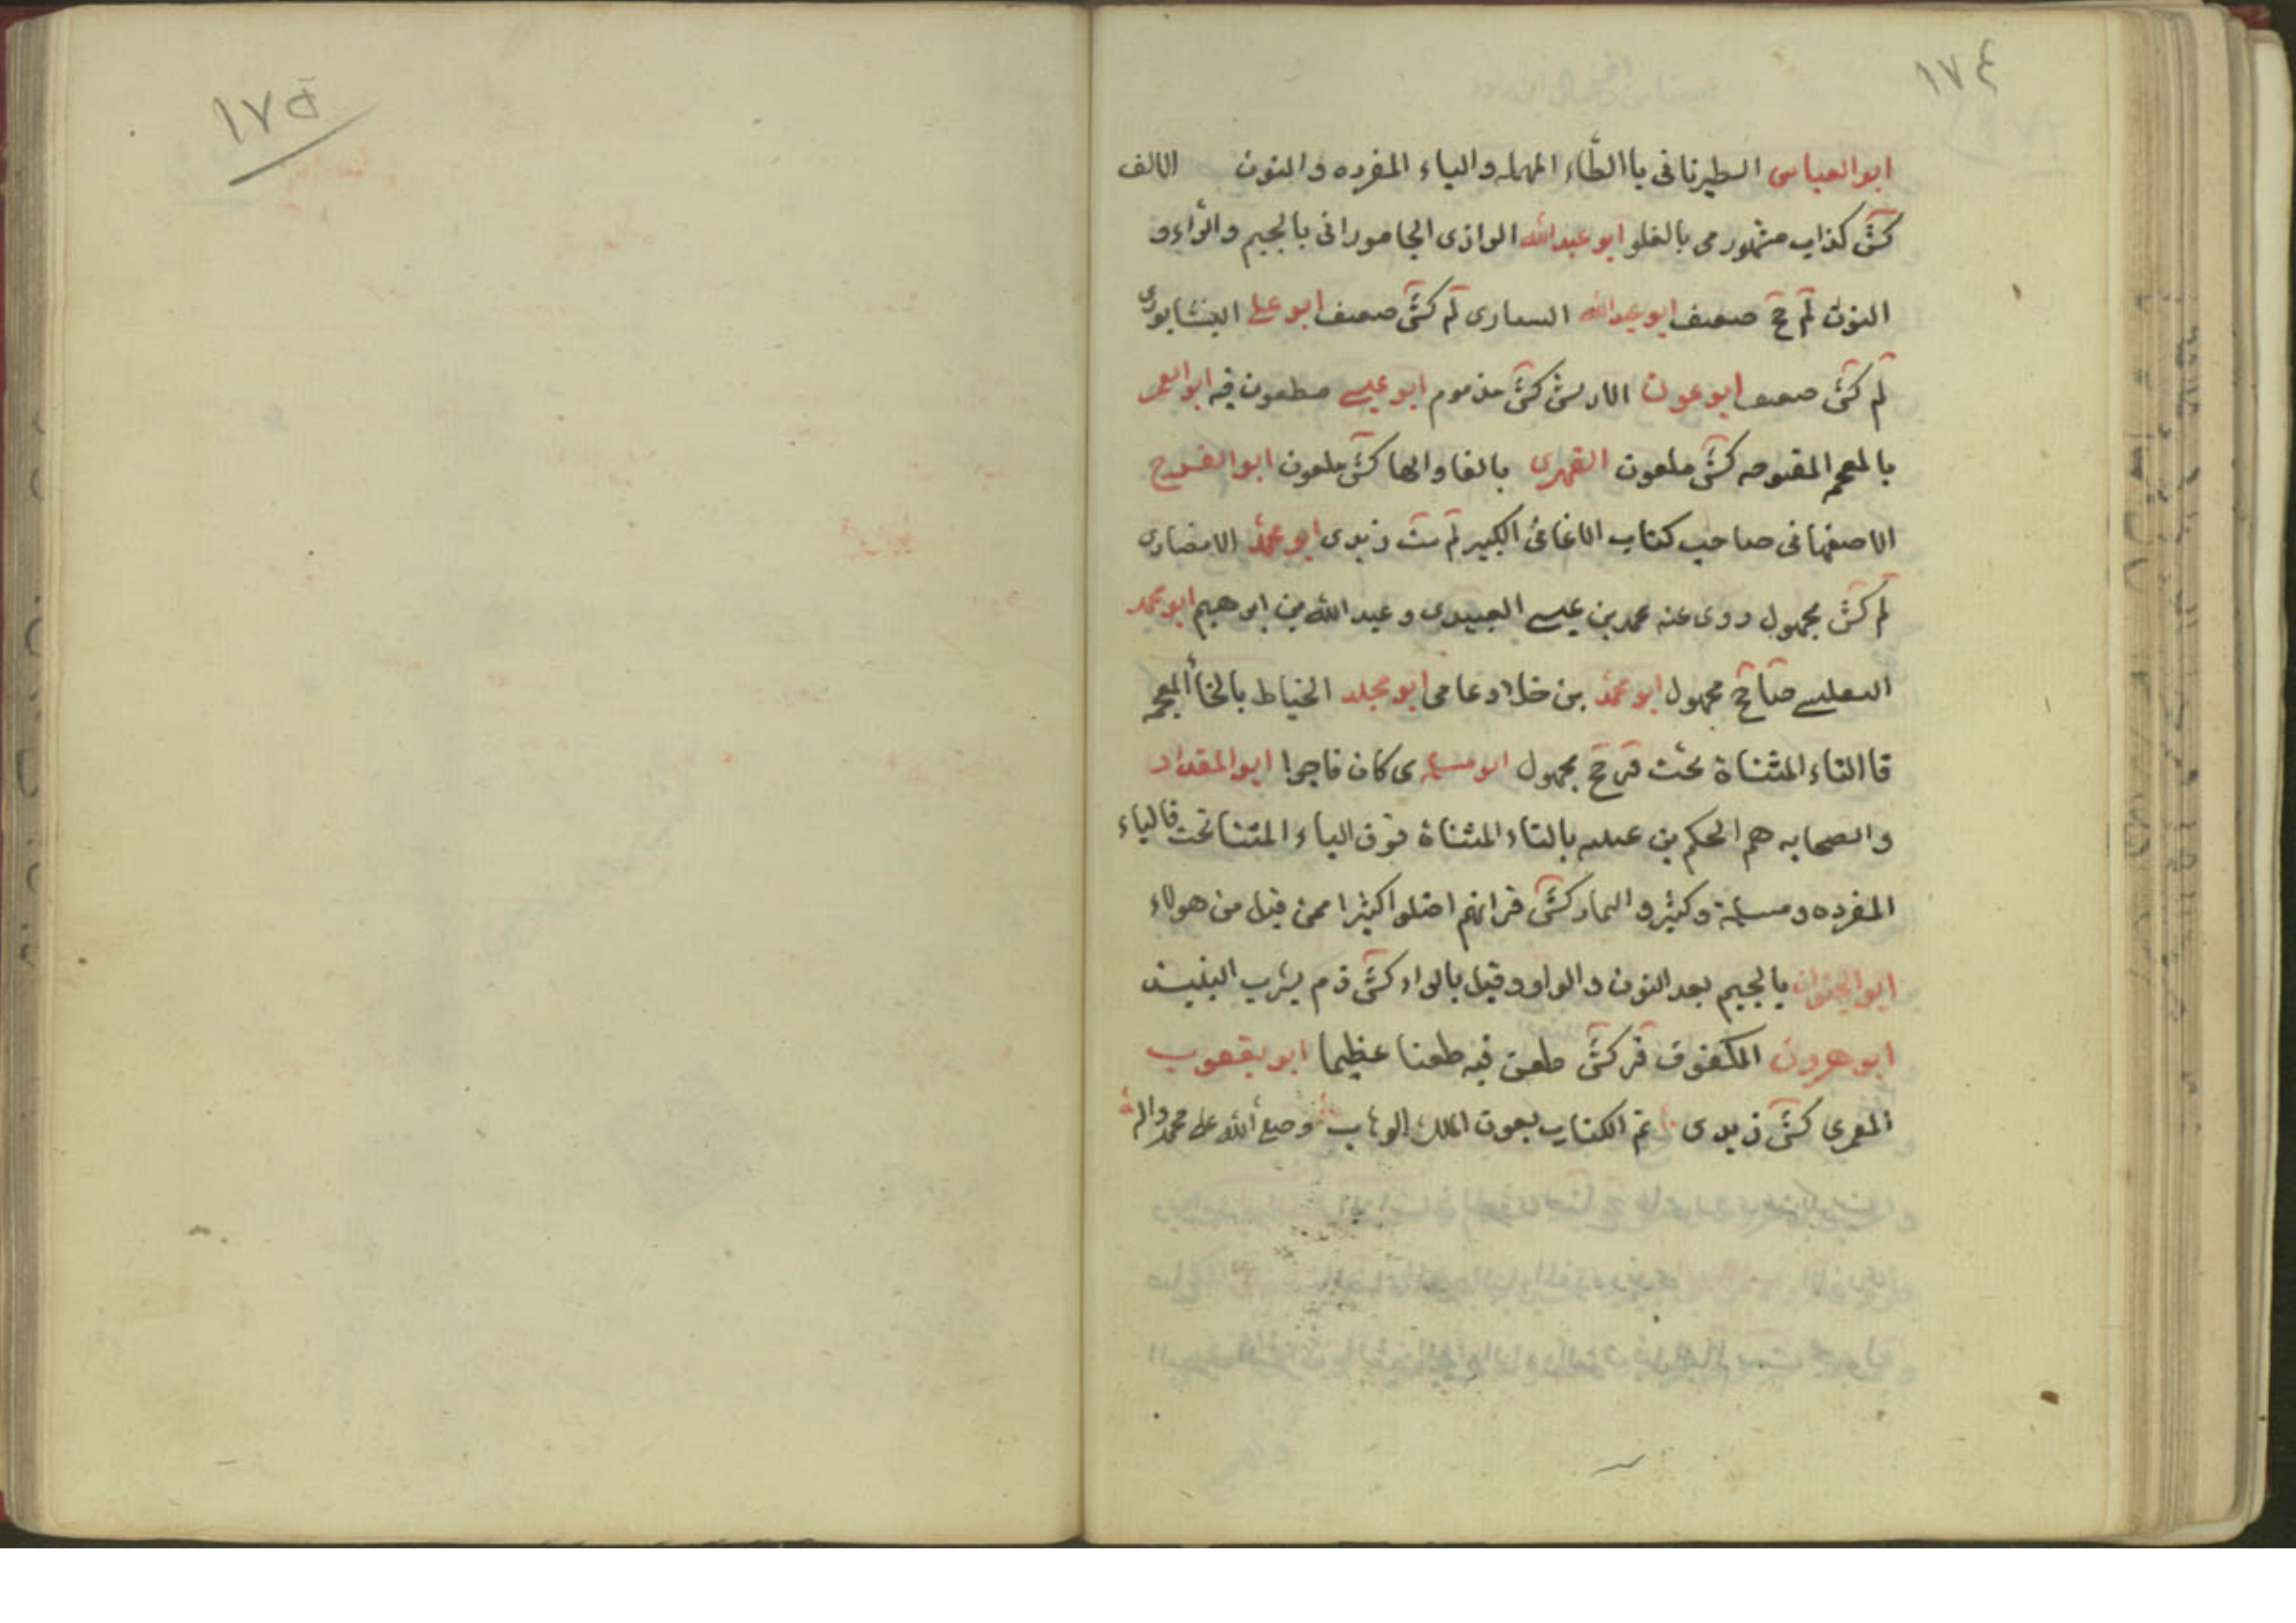 ١٧٤
ابو العباس الطبرنانى باالطاء المهمله والباء المفرده والنون الالف
كش كذاب مشهور مى بالغلو ابو عبدالله الرازى الجامورانى بالجيم والراء و
النون لم ح ضعيف ابو عبدالله السيارى لم كش ضعيف ابو على النيشابورى
لم كش ضعيف ابو عون كش مذموم ابو عيسى مطعون فيه ابو العمر
بالمعجمه كش ملعون الفهرى بالفا والها كش ملعون ابو الفرج
الاصفهانى صاحب كتاب الاغانى الكبير لم ست زيدى ابو محمد الانصارى
لم كش مجهول روى عنه محمد بن عيسى العبيدى و عبد الله بن ابرهيم ابو محمد
مجهول ابو محمد بن خلاد عامى ابو مجلد الخياط بالخا المعجمه
فا التاء المثناة تحت مجهول ابو مسلم ى كان فاجرا ابو المقداد
والصحابه هم الحكم بن عتيبه بالتاء المثناة فوق الياء المثنا تحت فالباء
المفرده و مسلمة وكثير و التمار كش قر انهم اضلوا كثيرا ممن ضل من هولاء
ابو النجوان بالجيم بعد النون والواو وقيل بالراء كش ذم يشرب النبيذ
ابو هرون المكفوف قر كش طعن فيه طعنا عظيما ابو يعقوب
المقرى كش زيدى تم الكتاب بعون الملك الوهاب وصلى الله على محمد واله
١٧٥